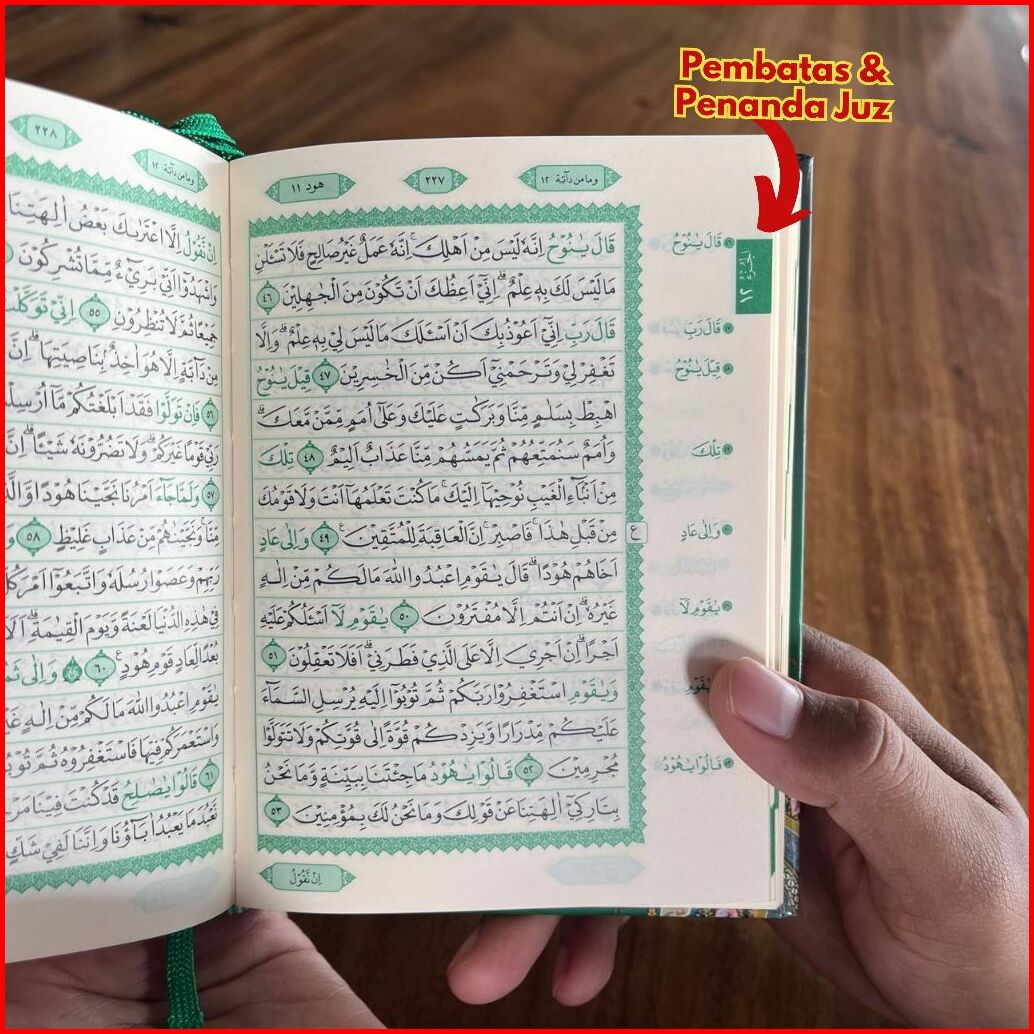 Pembatas &
Penanda Juz
وما من دآبة ١٢
٢٢٧
هود ١١
قَالَ يٰنُوْحُ اِنَّهٗ لَيْسَ مِنْ اَهْلِكَ ۚاِنَّهٗ عَمَلٌ غَيْرُ صَالِحٍ فَلَا تَسْـَٔلْنِ
مَا لَيْسَ لَكَ بِهٖ عِلْمٌ ۗاِنِّيْٓ اَعِظُكَ اَنْ تَكُوْنَ مِنَ الْجٰهِلِيْنَ ٤٦
قَالَ رَبِّ اِنِّيْٓ اَعُوْذُ بِكَ اَنْ اَسْـَٔلَكَ مَا لَيْسَ لِيْ بِهٖ عِلْمٌ ۗوَاِلَّا
تَغْفِرْ لِيْ وَتَرْحَمْنِيْٓ اَكُنْ مِّنَ الْخٰسِرِيْنَ ٤٧ قِيْلَ يٰنُوْحُ
اهْبِطْ بِسَلٰمٍ مِّنَّا وَبَرَكٰتٍ عَلَيْكَ وَعَلٰٓى اُمَمٍ مِّمَّنْ مَّعَكَ ۗ
وَاُمَمٌ سَنُمَتِّعُهُمْ ثُمَّ يَمَسُّهُمْ مِّنَّا عَذَابٌ اَلِيْمٌ ٤٨ تِلْكَ
مِنْ اَنْۢبَاۤءِ الْغَيْبِ نُوْحِيْهَآ اِلَيْكَ ۚمَا كُنْتَ تَعْلَمُهَآ اَنْتَ وَلَا قَوْمُكَ
مِنْ قَبْلِ هٰذَا ۚفَاصْبِرْ ۚاِنَّ الْعَاقِبَةَ لِلْمُتَّقِيْنَ ۚ ٤٩ وَاِلٰى عَادٍ
اَخَاهُمْ هُوْدًا ۗقَالَ يٰقَوْمِ اعْبُدُوا اللّٰهَ مَا لَكُمْ مِّنْ اِلٰهٍ
غَيْرُهٗ ۗاِنْ اَنْتُمْ اِلَّا مُفْتَرُوْنَ ٥٠ يٰقَوْمِ لَآ اَسْـَٔلُكُمْ عَلَيْهِ
اَجْرًا ۗاِنْ اَجْرِيَ اِلَّا عَلَى الَّذِيْ فَطَرَنِيْ ۗاَفَلَا تَعْقِلُوْنَ ٥١
وَيٰقَوْمِ اسْتَغْفِرُوْا رَبَّكُمْ ثُمَّ تُوْبُوْٓا اِلَيْهِ يُرْسِلِ السَّمَاۤءَ
عَلَيْكُمْ مِّدْرَارًا وَّيَزِدْكُمْ قُوَّةً اِلٰى قُوَّتِكُمْ وَلَا تَتَوَلَّوْا
مُجْرِمِيْنَ ٥٢ قَالُوْا يٰهُوْدُ مَا جِئْتَنَا بِبَيِّنَةٍ وَّمَا نَحْنُ
بِتَارِكِيْٓ اٰلِهَتِنَا عَنْ قَوْلِكَ وَمَا نَحْنُ لَكَ بِمُؤْمِنِيْنَ ٥٣
اِنْ نَّقُوْلُ
ع
الجزء ١٢
قَالَ يٰنُوْحُ
قَالَ رَبِّ
قِيْلَ يٰنُوْحُ
تِلْكَ
وَاِلٰى عَادٍ
يٰقَوْمِ لَآ
قَالُوْا يٰهُوْدُ
وما من دآبة ١٢
٢٢٨
اِنْ نَّقُوْلُ اِلَّا اعْتَرٰىكَ بَعْضُ اٰلِهَتِنَا
وَاشْهَدُوْٓا اَنِّيْ بَرِيْۤءٌ مِّمَّا تُشْرِكُوْنَ
جَمِيْعًا ثُمَّ لَا تُنْظِرُوْنِ ٥٥ اِنِّيْ تَوَكَّلْتُ
مِنْ دَاۤبَّةٍ اِلَّا هُوَ اٰخِذٌۢ بِنَاصِيَتِهَا ۗاِنَّ
٥٦ فَاِنْ تَوَلَّوْا فَقَدْ اَبْلَغْتُكُمْ مَّآ اُرْسِلْتُ
رَبِّيْ قَوْمًا غَيْرَكُمْ ۗوَلَا تَضُرُّوْنَهٗ شَيْـًٔا ۗاِنَّ
٥٧ وَلَمَّا جَاۤءَ اَمْرُنَا نَجَّيْنَا هُوْدًا وَّالَّ
مِّنَّا ۚوَنَجَّيْنٰهُمْ مِّنْ عَذَابٍ غَلِيْظٍ ٥٨
رَبِّهِمْ وَعَصَوْا رُسُلَهٗ وَاتَّبَعُوْٓا اَمْرَ كُلِّ
فِيْ هٰذِهِ الدُّنْيَا لَعْنَةً وَّيَوْمَ الْقِيٰمَةِ ۗاَلَآ
بُعْدًا لِّعَادٍ قَوْمِ هُوْدٍ ٦٠ وَاِلٰى ثَمُ
يٰقَوْمِ اعْبُدُوا اللّٰهَ مَا لَكُمْ مِّنْ اِلٰهٍ غَيْ
وَاسْتَعْمَرَكُمْ فِيْهَا فَاسْتَغْفِرُوْهُ ثُمَّ تُوْبُ
٦١ قَالُوْا يٰصٰلِحُ قَدْ كُنْتَ فِيْنَا مَرْ
نَّعْبُدَ مَا يَعْبُدُ اٰبَاۤؤُنَا وَاِنَّنَا لَفِيْ شَكٍّ